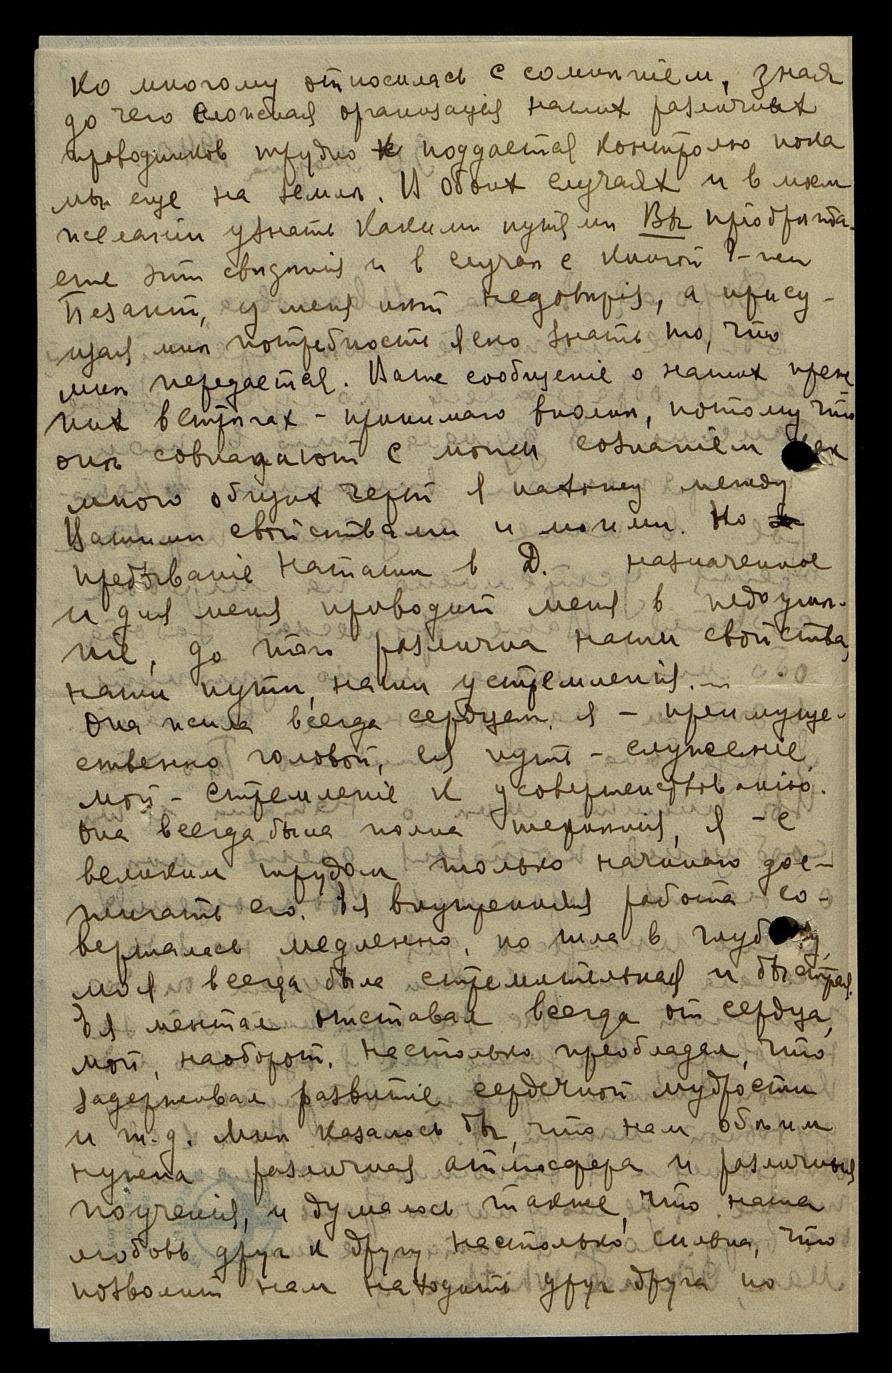 ко многому относилась с сомнѣніем, зная
до чего сложная организація наших различных
проводников трудно поддается контролю пока
мы еще на землѣ. В обоих случаях и в моем
желаніи узнать какими путями Вы пріобрѣта-
ете эти свѣдѣнія и в случаѣ с книгой
Безант, у меня нѣт недовѣрія, а прису-
щая мнѣ потребность ясно знать то, что
мнѣ передается. Ваше сообщеніе о наших преж
них встрѣчах - принимаю вполнѣ, потому что
онѣ совпадают с моим сознаніем
много общих черт я нахожу между
Вашими свойствами и моими. Но
пребываніе Наташи в Д. - назначенное
и для меня приводит меня в недоумѣ-
ніе, до того различны наши свойства,
наши пути, наши устремленія. —
Она жила всегда сердцем, я - преимуще-
ственно головой, ея путь - служеніе,
мой - стремленіе к усовершенствованію.
Она всегда была полна терпѣнія, я - с
великим трудом только начинаю дос-
тигать его. Ея внутренняя работа со-
вершалась медленно, но шла в глубину,
моя всегда была стремительная и быстрая.
Ея ментал отставал всегда от сердца,
мой, наоборот, настолько преобладал, что
задерживал развитіе сердечной мудрости
и т.д. Мнѣ казалось бы, что нам обѣим
нужна различная атмосфера и различныя
поученія, и думалось также, что наша
любовь друг к другу настолько сильна, что
позволит нам находить друг друга по